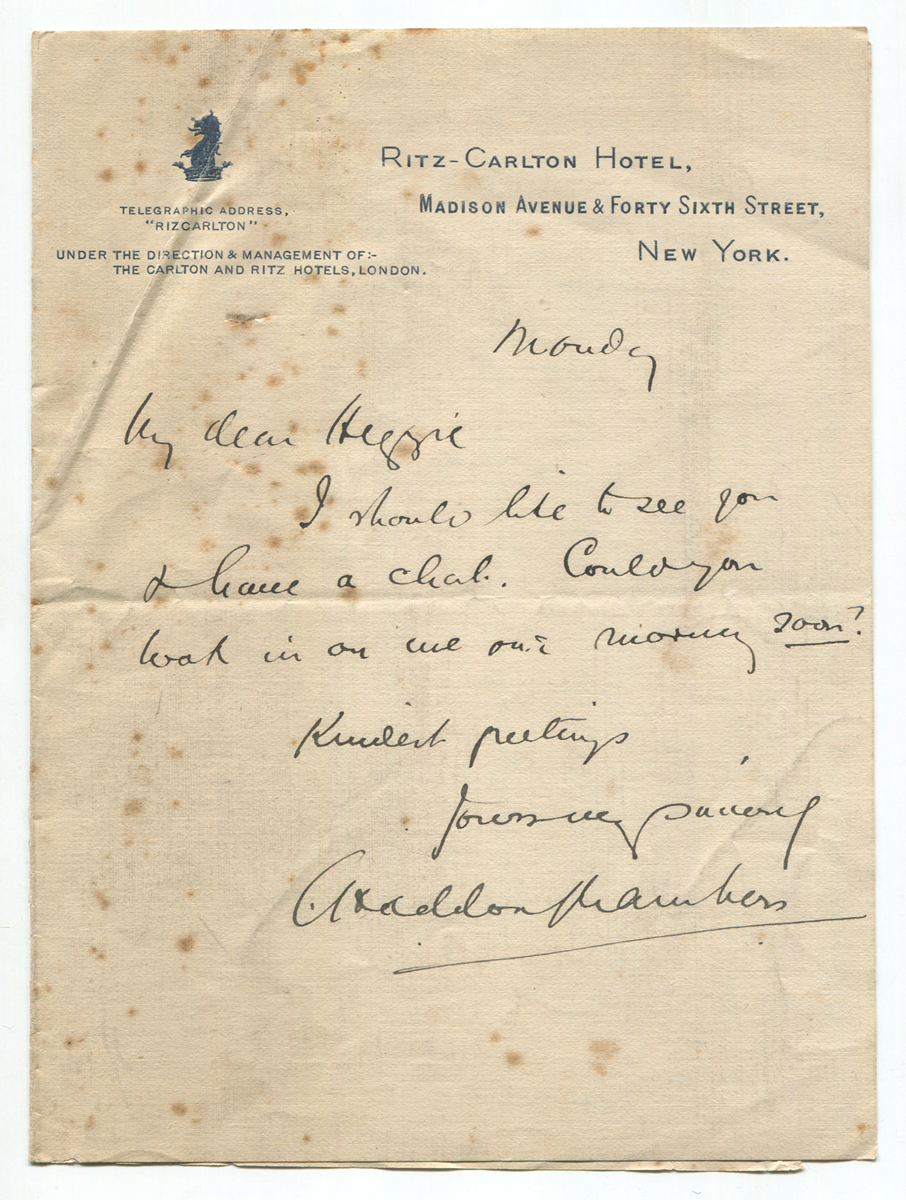 RITZ-CARLTON HOTEL,
MADISON AVENUE & FORTY SIXTH STREET,
NEW YORK.
TELEGRAPHIC ADDRESS,
"RIZCARLTON"
UNDER THE DIRECTION & MANAGEMENT OF:-
THE CARLTON AND RITZ HOTELS, LONDON.
Monday
My dear Heggie
I should like to see you
& have a chat. Could you
look in on me one morning soon?
Kindest greetings
Yours very sincerely
C Haddon Chambers